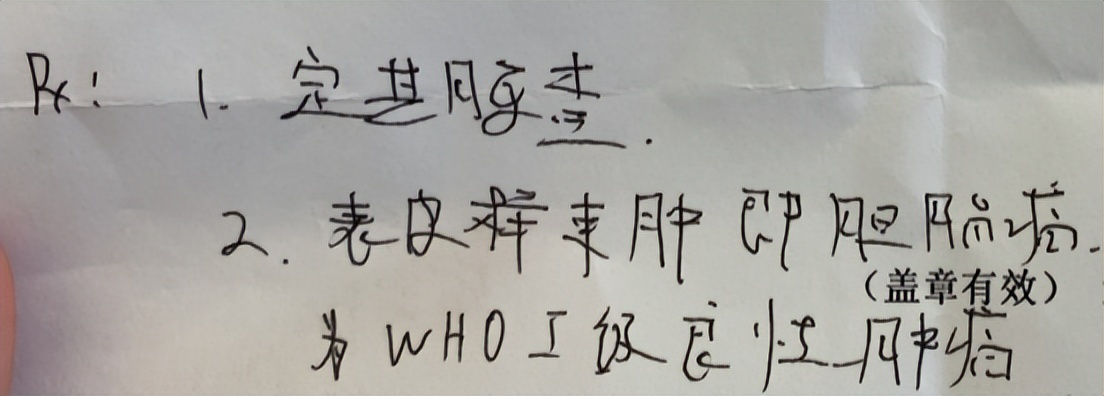 Rx: 1. 定期复查.
2. 表皮样囊肿即胆脂瘤.
(盖章有效)
为WHO I级良性肿瘤